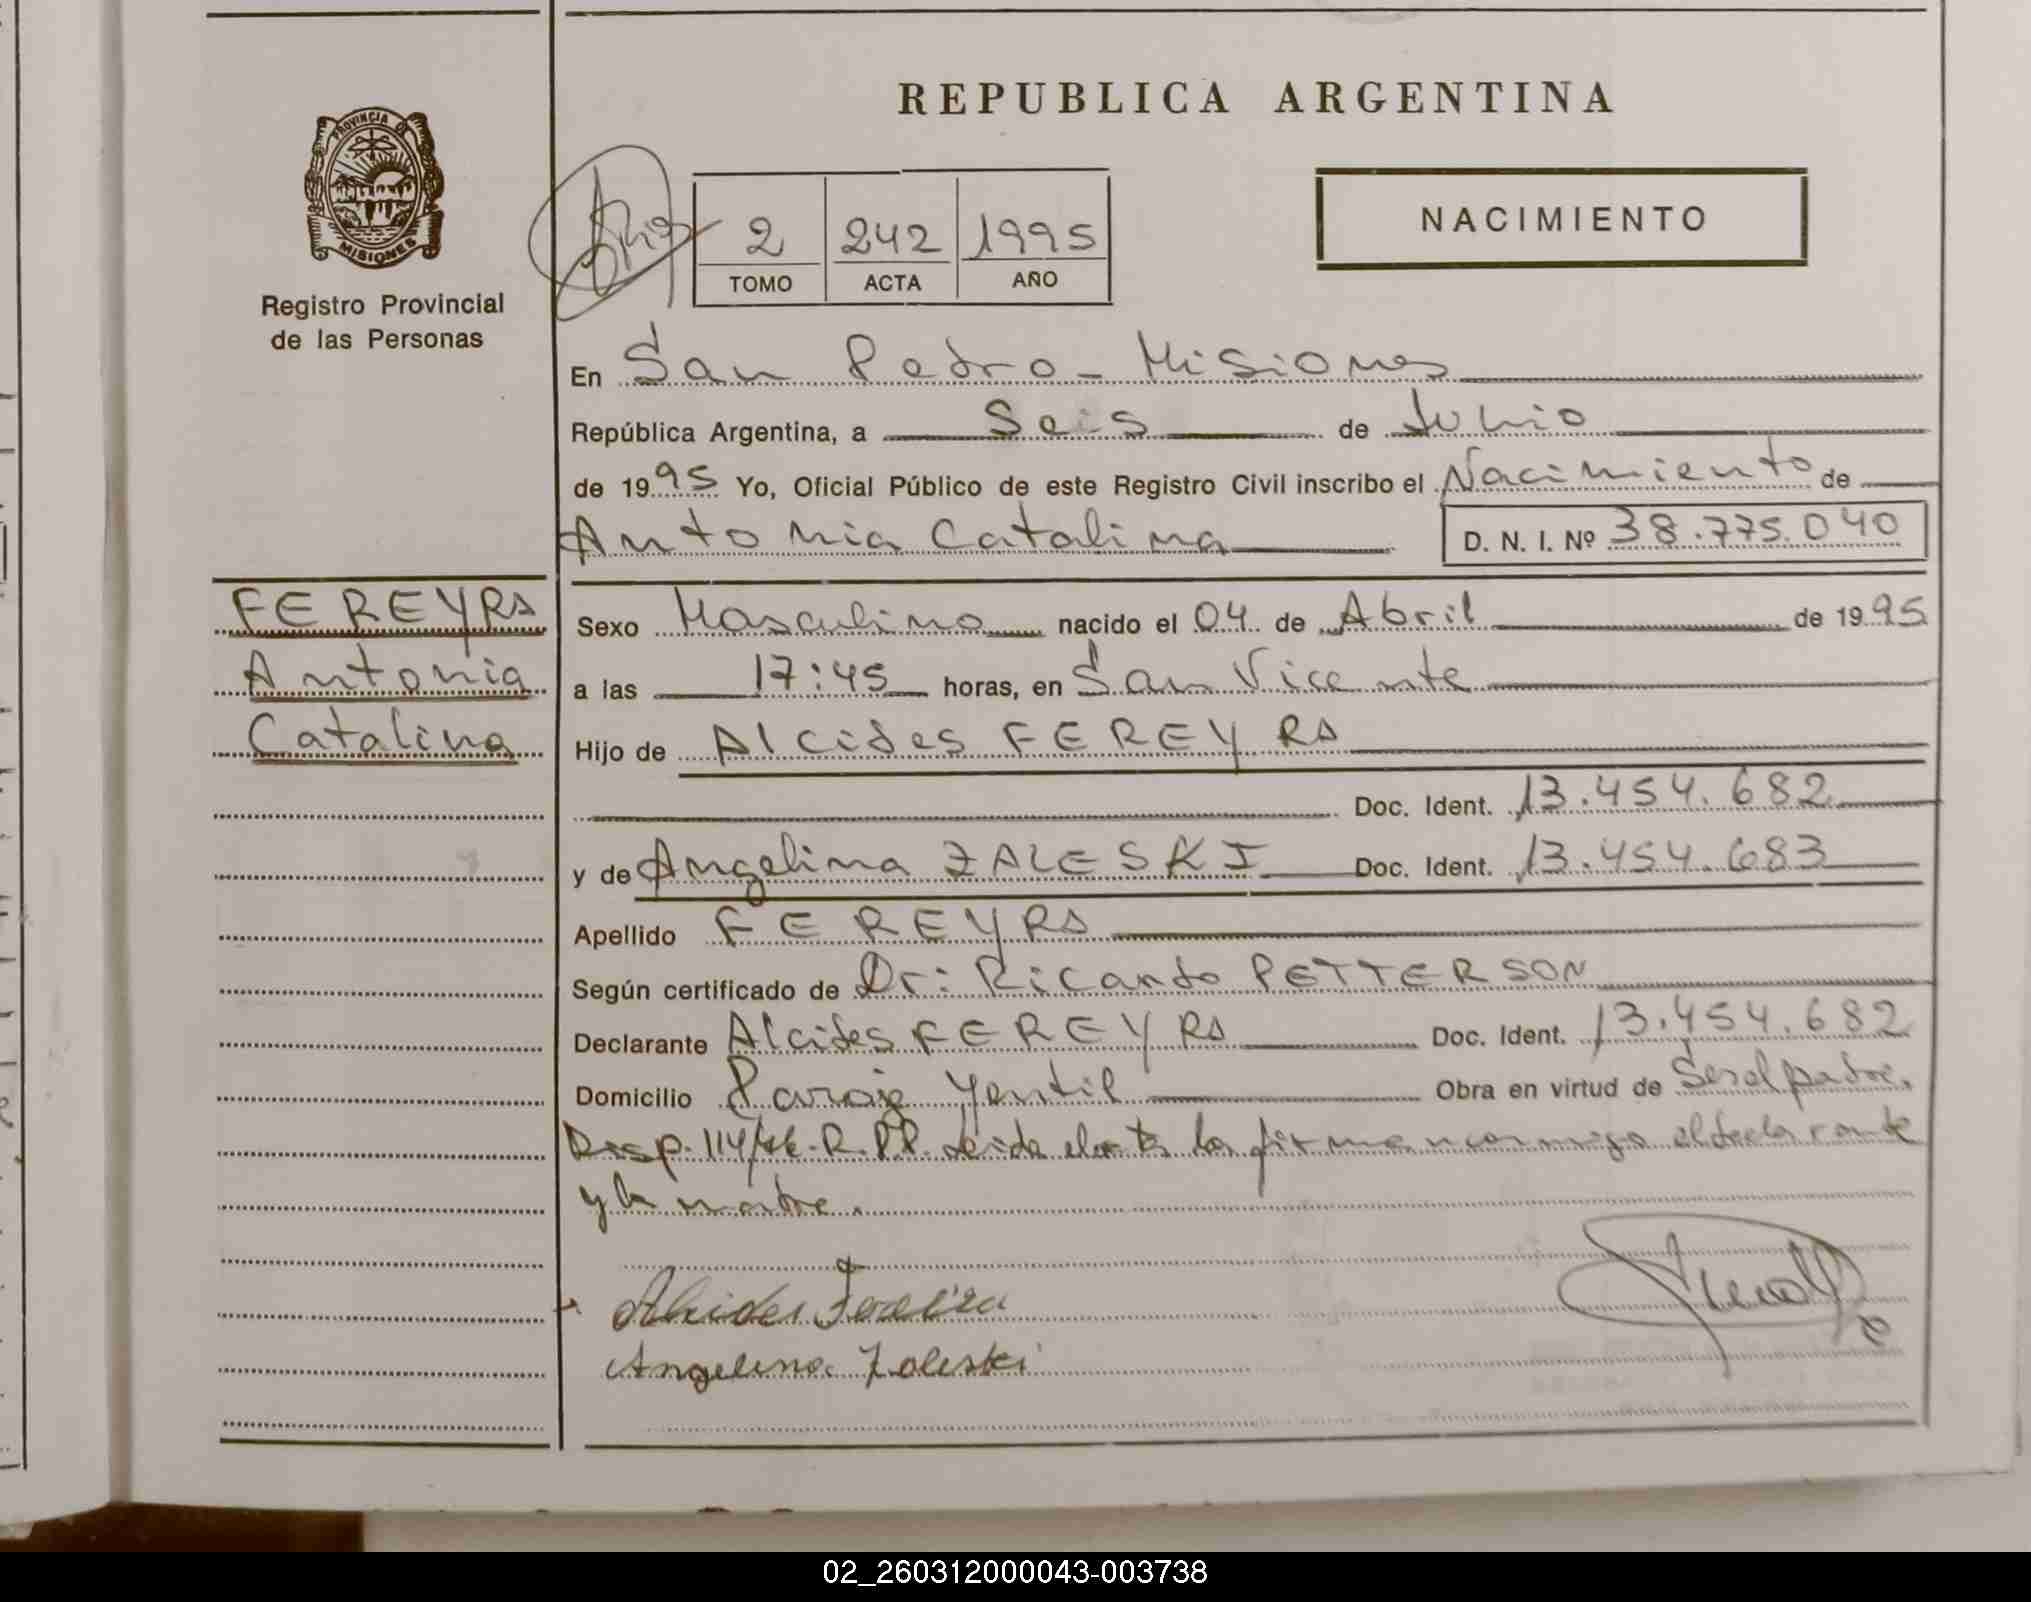 REPUBLICA ARGENTINA
PROVINCIA DE
MISIONES
Registro Provincial
de las Personas
2 242 1995
TOMO ACTA AÑO
NACIMIENTO
En San Pedro - Misiones
República Argentina, a Seis de Junio
de 1995 Yo, Oficial Público de este Registro Civil inscribo el Nacimiento de
Antonia Catalina D. N. I. Nº 38.775.040
FEREYRA
Antonia
Catalina
Sexo Masculino nacido el 04 de Abril de 1995
a las 17:45 horas, en San Vicente
Hijo de Alcides FEREYRA
Doc. Ident. 13.454.682
y de Angelina ZALESKI Doc. Ident. 13.454.683
Apellido FEREYRA
Según certificado de Dr: Ricardo PETTERSON
Declarante Alcides FEREYRA Doc. Ident. 13.454.682
Domicilio Paraje Gentil Obra en virtud de Ser el padre.
Disp. 114/ R.P.P. leida el acta la firman conmigo el declarante
y la madre.
Alcides Fereira
Angelina Zaleski
02_260312000043-003738